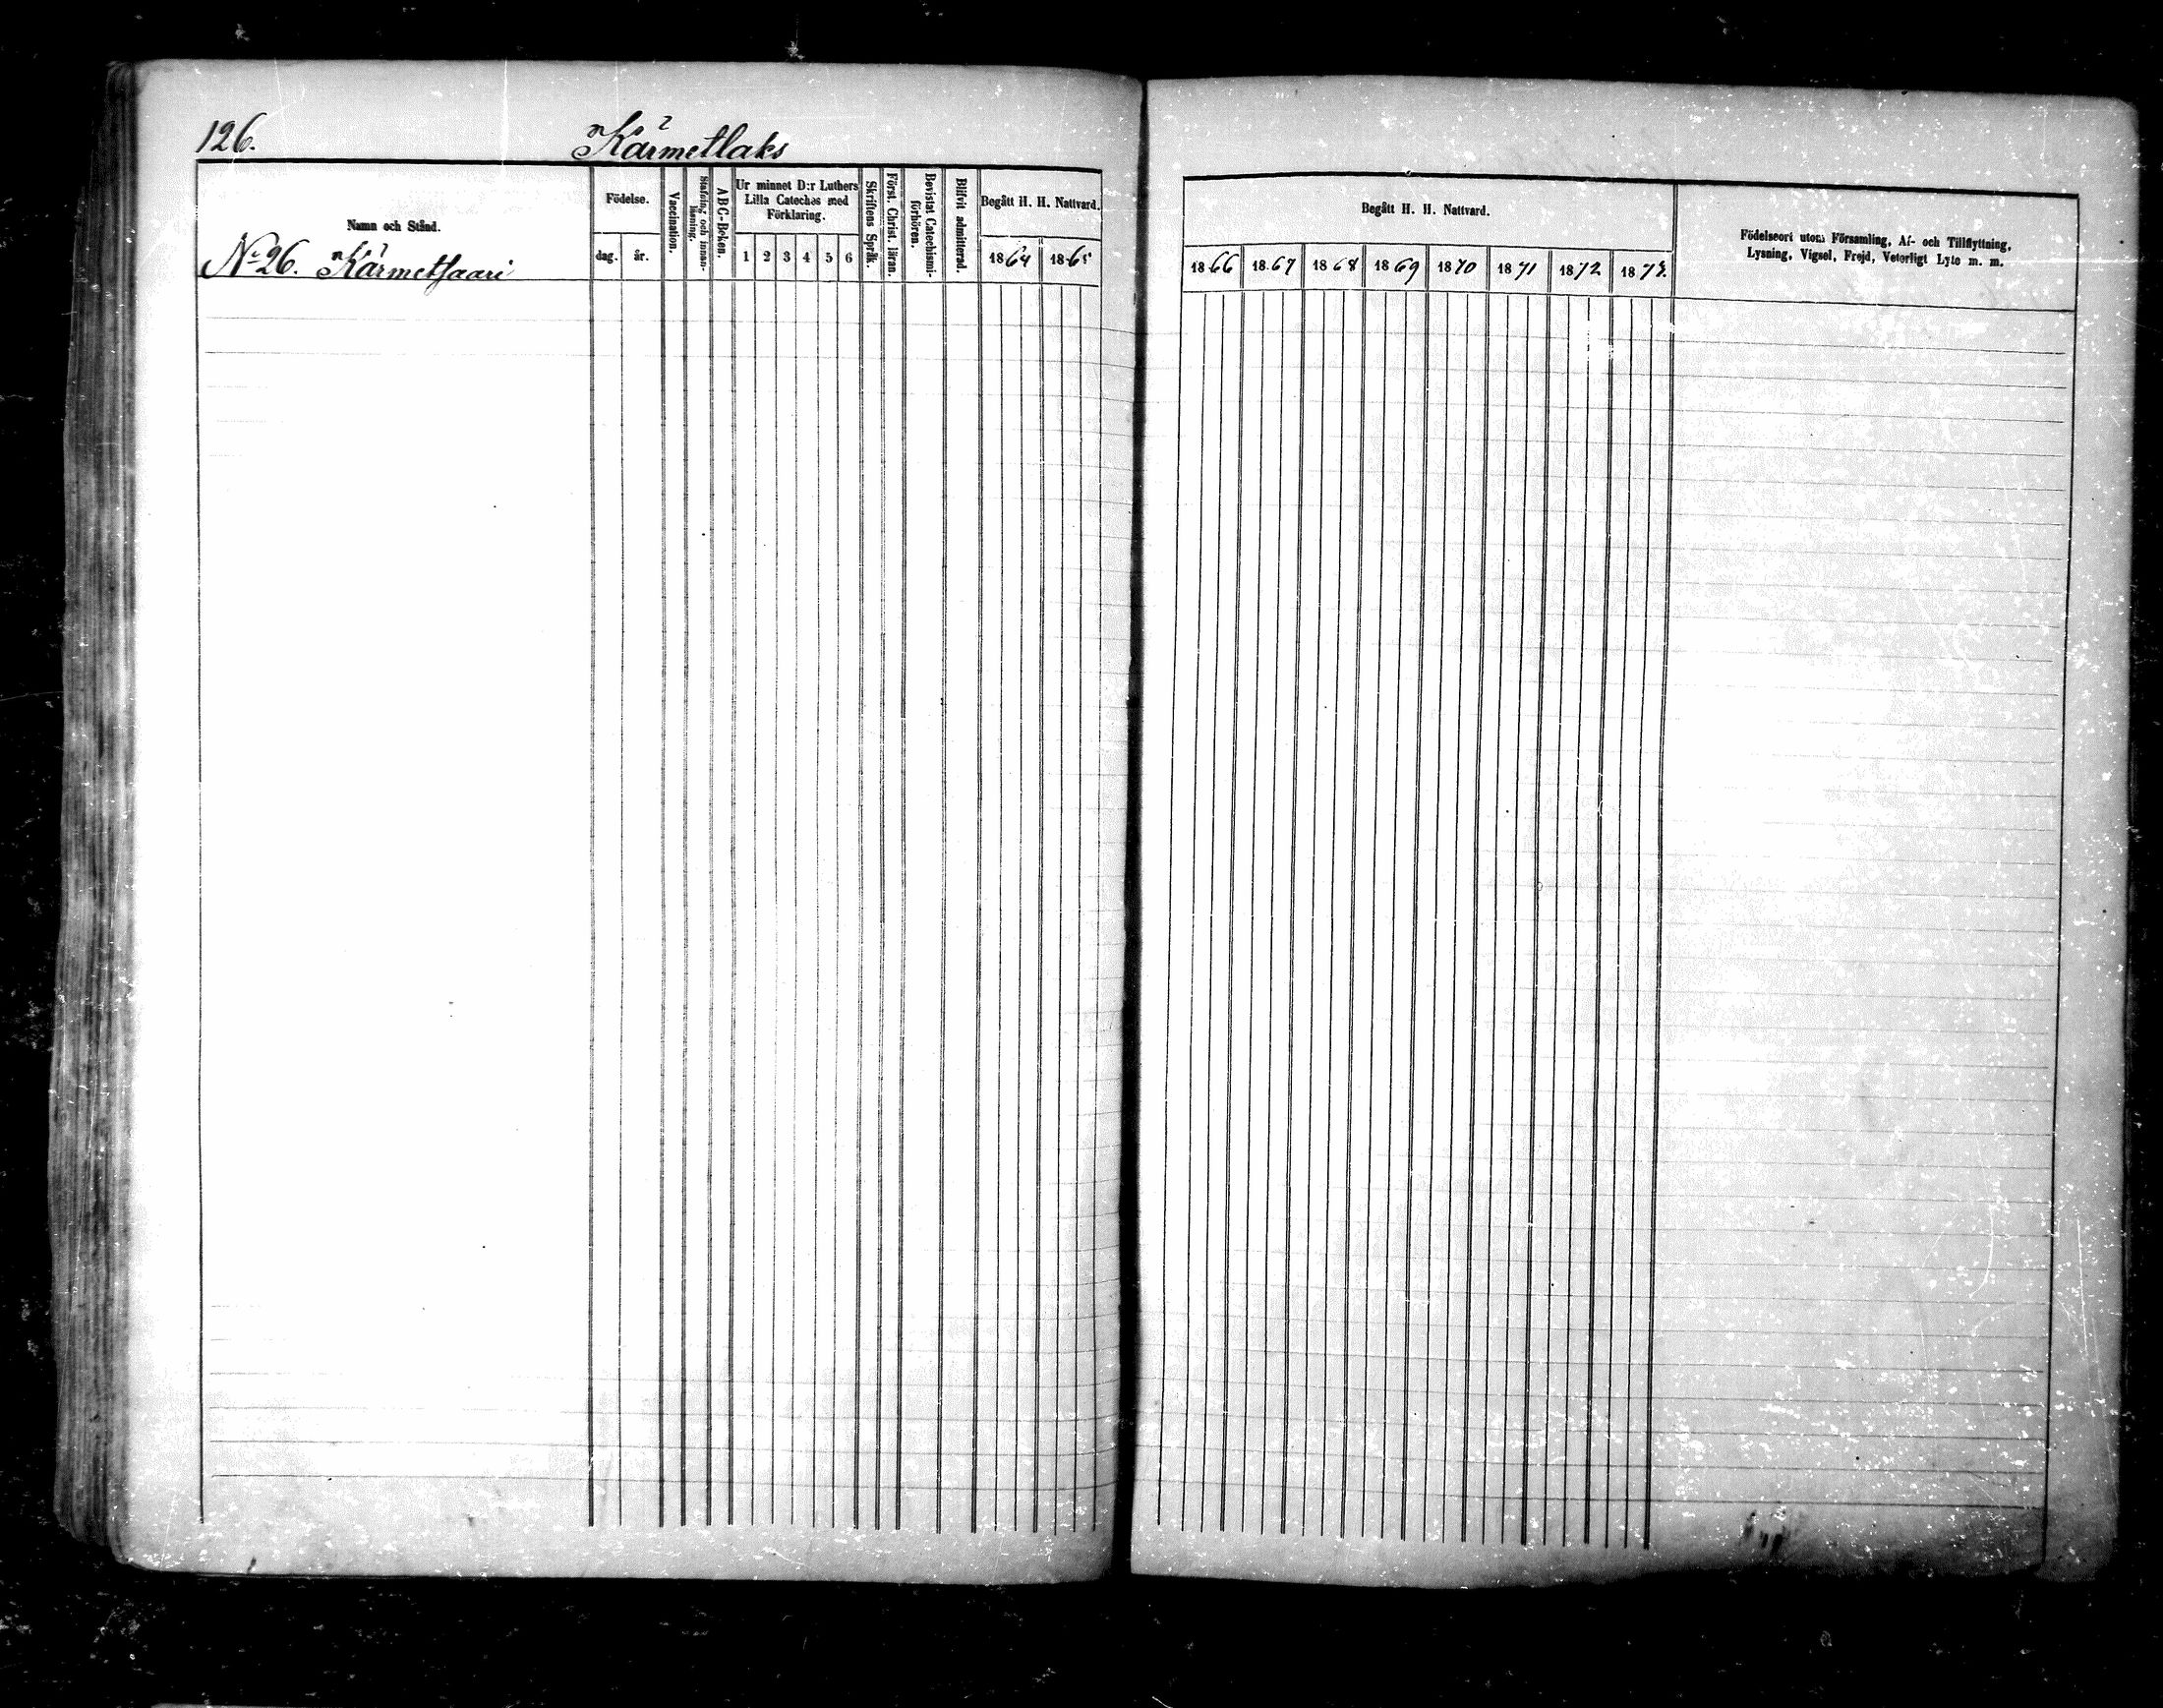 126.
Kärmetlaks
Namn och Stånd.
Födelse.
dag.
år.
Vaccination.
Stafning och innan-
läsning.
ABC-Boken.
Ur minnet D:r Luthers
Lilla Cateches med
Förklaring.
1 2 3 4 5 6
Skriftens Språk.
Först. Christ. läran.
Bevistat Catechismi-
förhören.
Blifvit admitterad.
Begått H. H. Nattvard.
1864 1865
Nº 26. Kärmetsaari
Begått H. H. Nattvard.
1866 1867 1868 1869 1870 1871 1872 1873.
Födelseort utom Församling, Af- och Tillflyttning,
Lysning, Vigsel, Frejd, Veterligt Lyte m. m.